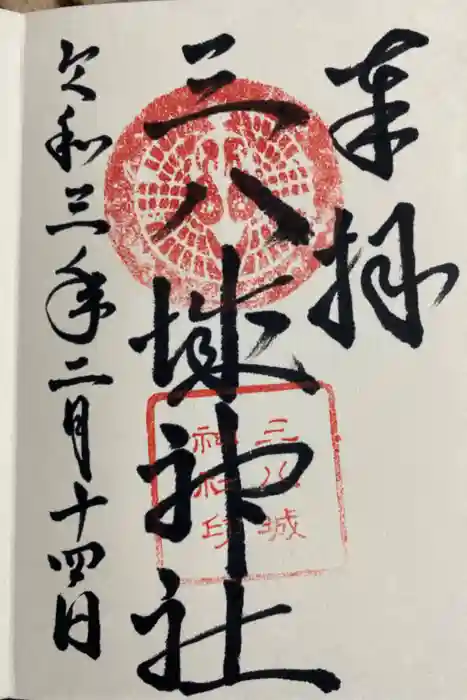 奉拝
三八城神社
三八城
神社印
令和三年二月十四日